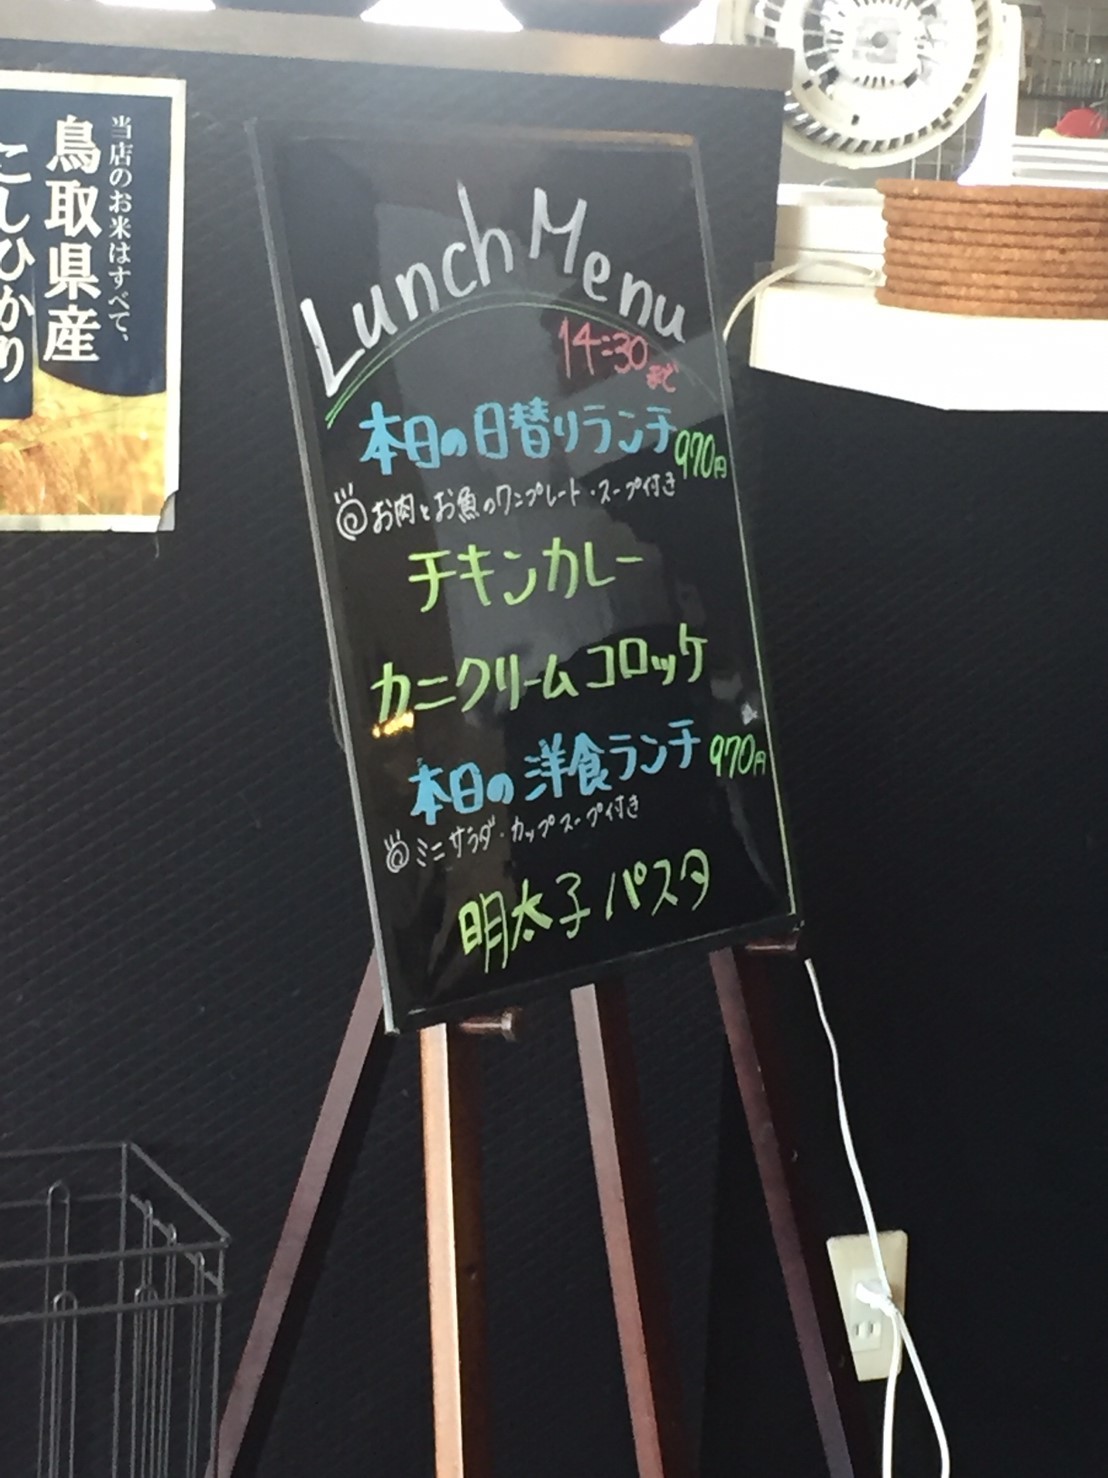 当店のお米はすべて、
鳥取県産
こしひかり
Lunch Menu
14:30まで
本日の日替りランチ 970円
お肉とお魚のワンプレート・スープ付き
チキンカレー
カニクリームコロッケ
本日の洋食ランチ 970円
ミニサラダ・カップスープ付き
明太子パスタ